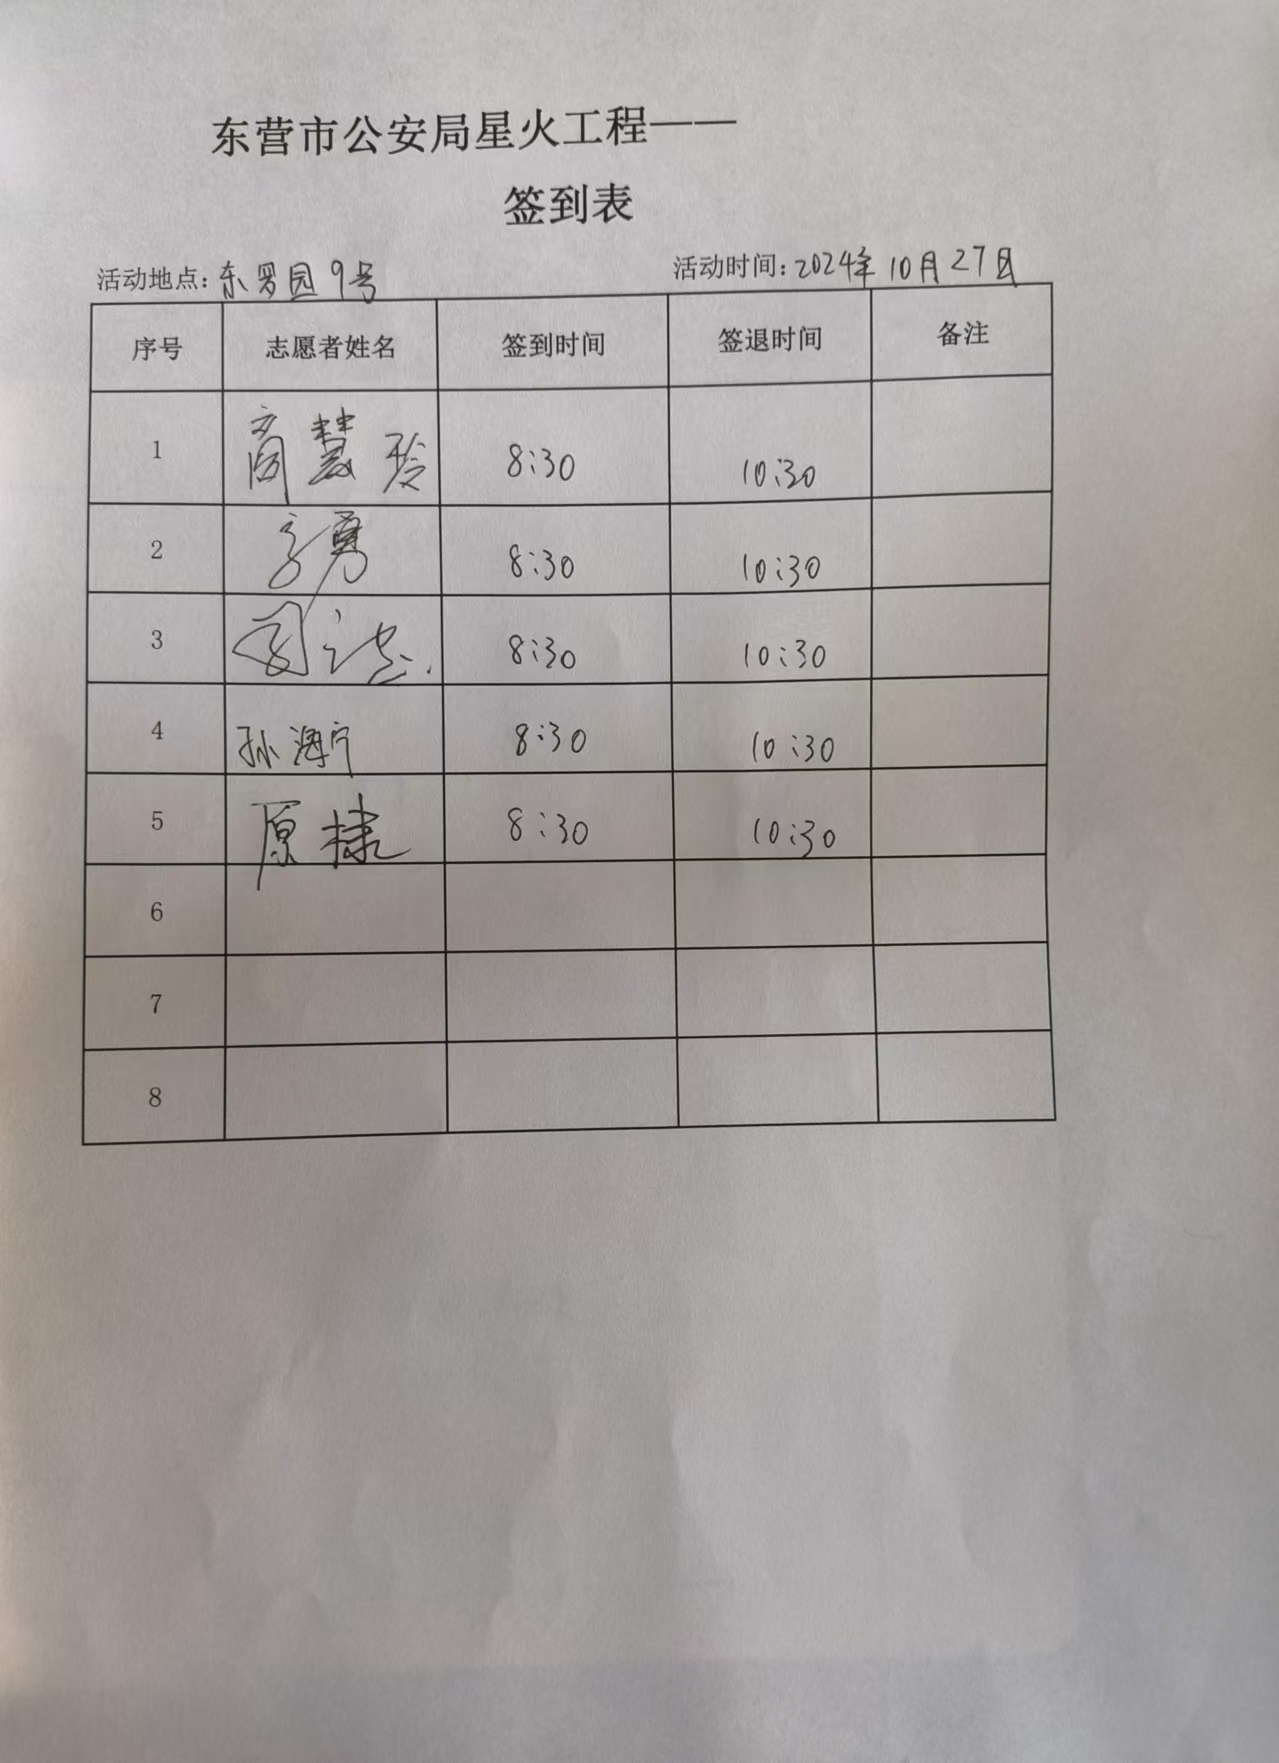 东营市公安局星火工程——
签到表
活动地点：东罗园9号 活动时间：2024年10月27日
序号 志愿者姓名 签到时间 签退时间 备注
1 商慧玲 8:30 10:30
2 8:30 10:30
3 8:30 10:30
4 孙海宁 8:30 10:30
5 原棣 8:30 10:30
6
7
8